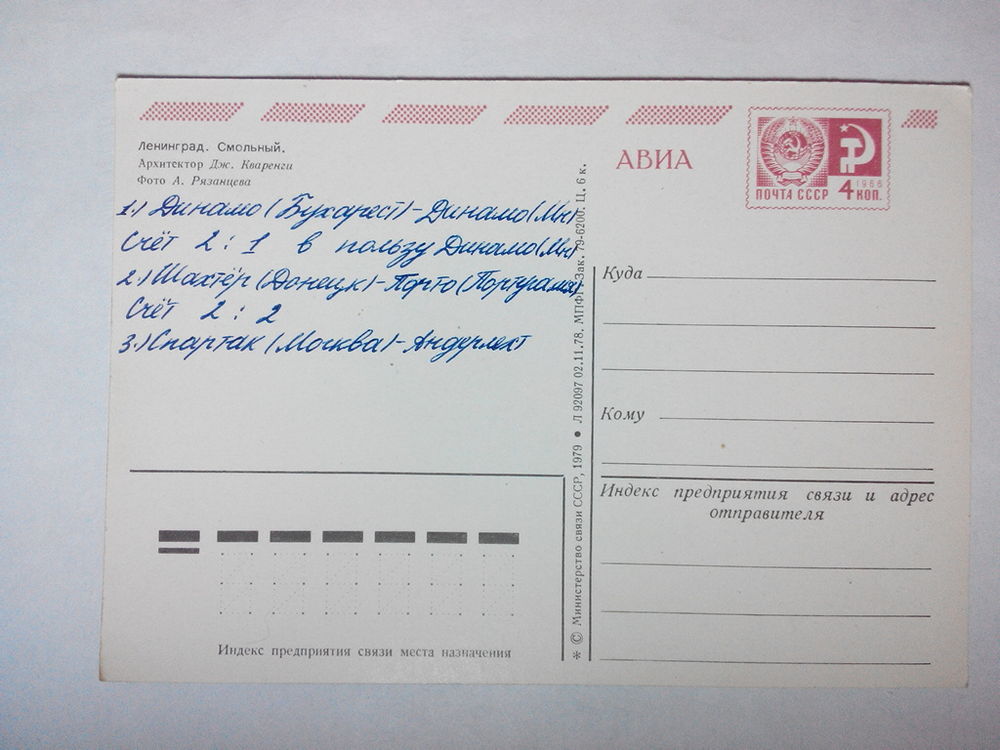 Ленинград. Смольный.
Архитектор Дж. Кваренги
Фото А. Рязанцева
1.) Динамо (Бухарест) - Динамо (Мн)
Счёт 2 : 1 в пользу Динамо (Мн)
2.) Шахтёр (Донецк) - Порто (Португалия)
Счёт 2 : 2
3.) Спартак (Москва) - Андерлехт
Индекс предприятия связи места назначения
* © Министерство связи СССР, 1979 ● Л 92097 02.11.78. МПФГ. Зак. 79-6200. Ц. 6 к.
АВИА
1966
ПОЧТА СССР 4 КОП.
Куда
Кому
Индекс предприятия связи и адрес
отправителя